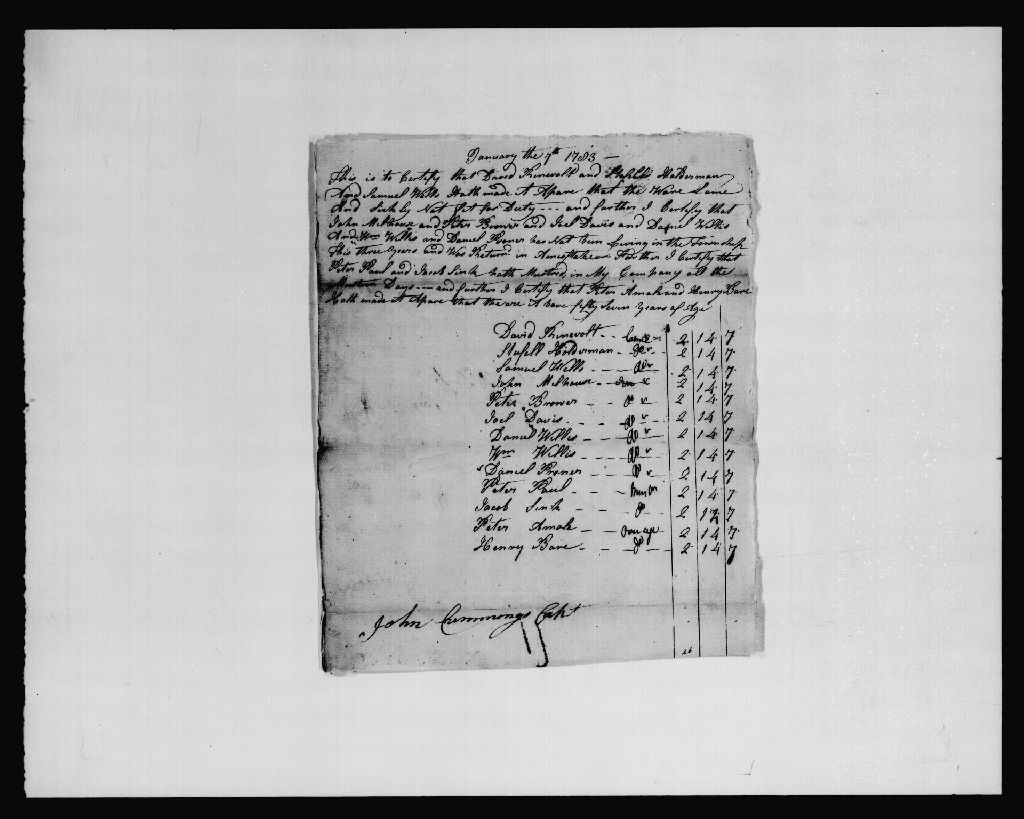 January the 7th 1783 —
This is to Certify that David Rinevolt and Stofell Holderman
And Samuel Wells Hath made it Apare that the Ware Lame
And Sickly Not Fit for Duty --- and further I Certify that
John Milhouse and Peter Brower and Joel Davis and Daniel Willis
And Wm Willis and Daniel has Not been Living in the Township
This three years and Was Return'd in Amustake Further I Certify that
Peter Paul and Jacob Sink hath Mustred in My Company all the
Days — and further I Certify that Peter Amak and Henry Bare
Hath made it Apare that the are A bove fifty Seven Years of Age
David Rinevolt - - 2 14 7
Stofell Holderman - do 2 14 7
Samuel Wells - - do 2 14 7
John Milhouse - - 2 14 7
Peter Brower - - do 2 14 7
Joel Davis - - do 2 14 7
Daniel Willis - do 2 14 7
Wm Willis - - do 2 14 7
Daniel - - do 2 14 7
Peter Paul - - 2 14 7
Jacob Sink - - do 2 14 7
Peter Amak - - 2 14 7
Henry Bare - - do 2 14 7
John Cummings Capt